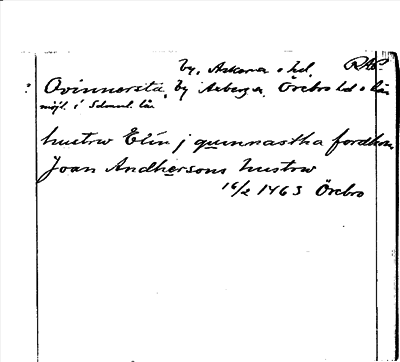 by, Askersa o hd, RAP.
: Qvinnersta, by Axberga, Örebro hd o län
möjl. i Södml. län
hustrw Elin j quinnastha fordhom
Joan Andhersons hustrw
16/2 1463 Örebro